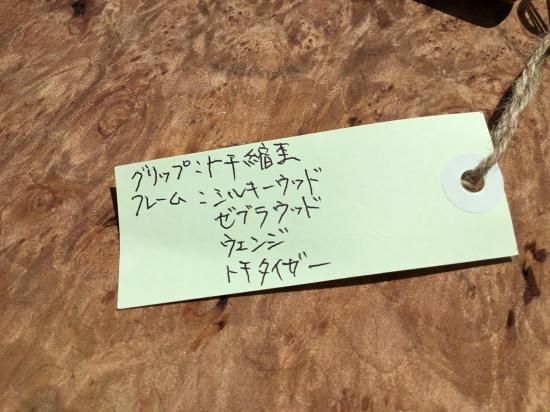 グリップ:トチ縮杢
フレーム:シルキーウッド
ゼブラウッド
ウェンジ
トチタイガー